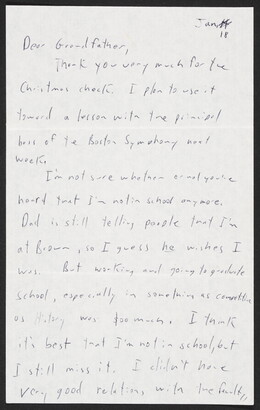 Jan 18
Dear Grandfather,
Thank you very much for the
Christmas check. I plan to use it
toward a lesson with the principal
bass of the Boston Symphony next
week.
I'm not sure whether or not you've
heard that I'm not in school anymore.
Dad is still telling people that I'm
at Brown, so I guess he wishes I
was. But working and going to graduate
school, especially in something as competitive
as history was too much. I think
it's best that I'm not in school, but
I still miss it. I didn't have
very good relations with the faculty,